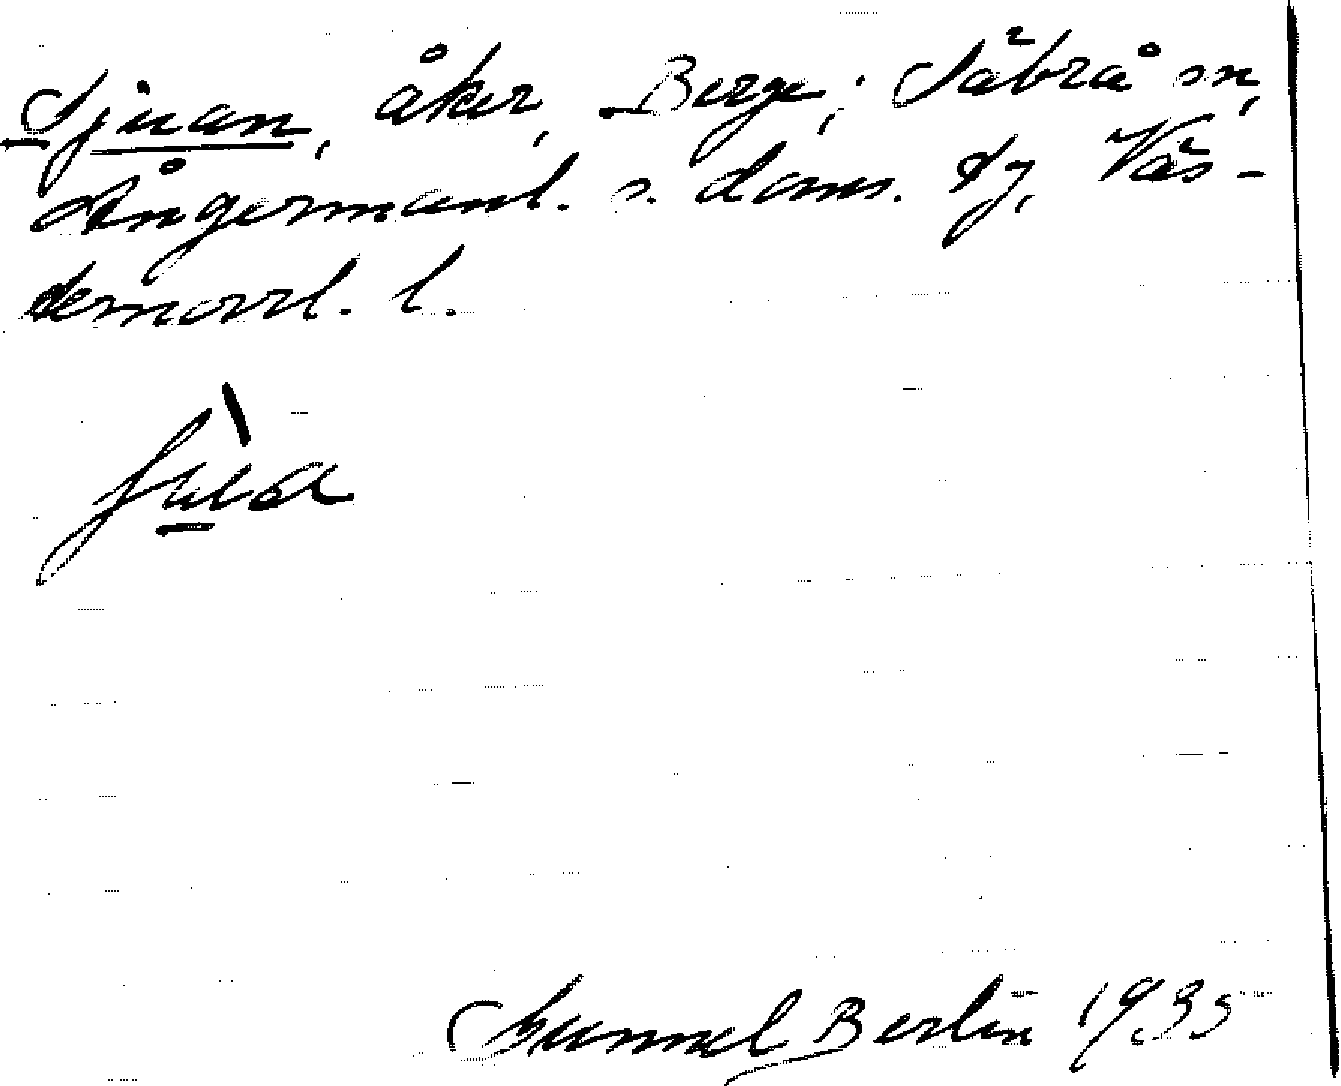 Sjuan, åker, Berge; Säbrå sn,
Ångermanl. s. doms. tg, Väs-
ternorrl. l.
Gunnel Berlin 1935